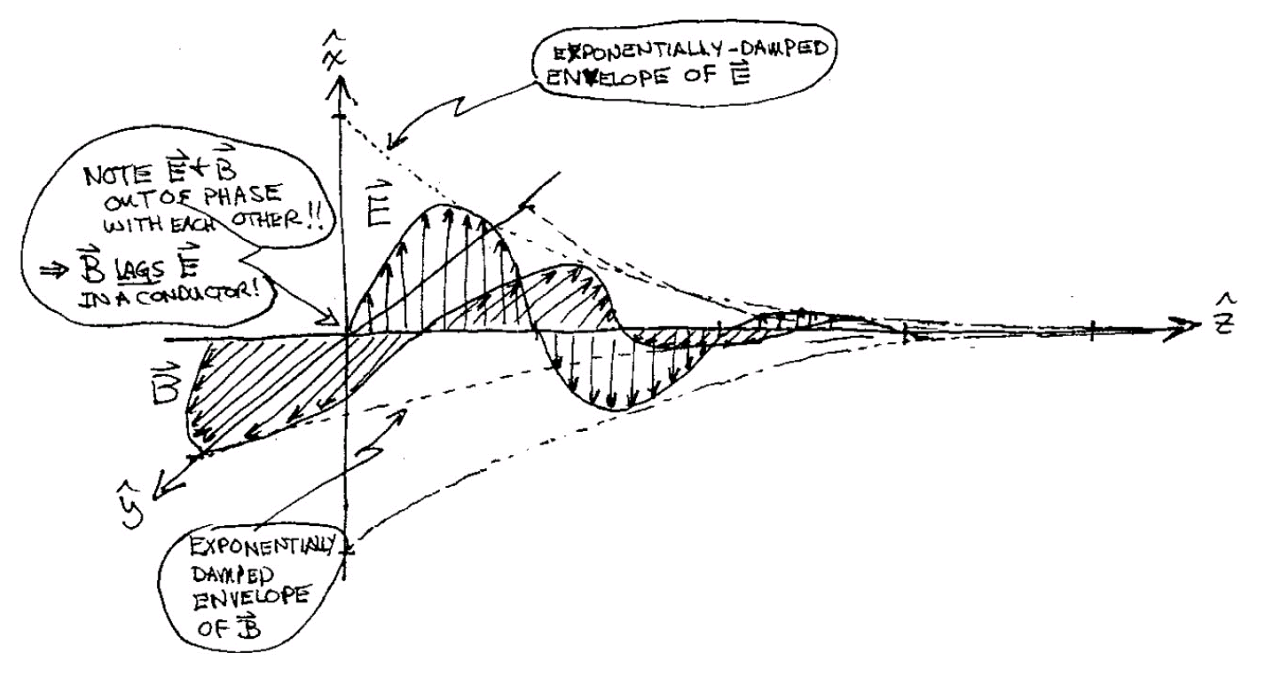 x̂
EXPONENTIALLY-DAMPED
ENVELOPE OF E⃗
NOTE E⃗ + B⃗
OUT OF PHASE
WITH EACH OTHER!!
⇒ B⃗ LAGS E⃗
IN A CONDUCTOR!
E⃗
ẑ
B⃗
ŷ
EXPONENTIALLY
DAMPED
ENVELOPE
OF B⃗